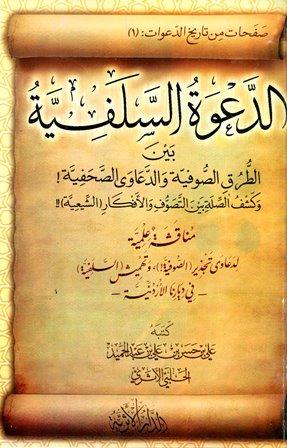 صفحات من تاريخ الدعوات: (١)
الدَّعْوَةُ السَّلَفِيَّةُ
بَيْنَ
الطُّرُقِ الصُّوفِيَّةِ وَالدَّعَاوَى الصَّحَفِيَّةِ!
وَكَشْفُ الصِّلَةِ بَيْنَ التَّصَوُّفِ وَالأَفْكَارِ (الشِّيعِيَّةِ)!!
مُنَاقَشَةٌ عِلْمِيَّةٌ
لدعاوى تجذير (الصوفية!)، وتهميش (السلفية)
- في ديارنا الأردنية -
كتبه
علي بن حسن بن علي بن عبد الحميد
الحلبي الأثري
الدار الأثرية